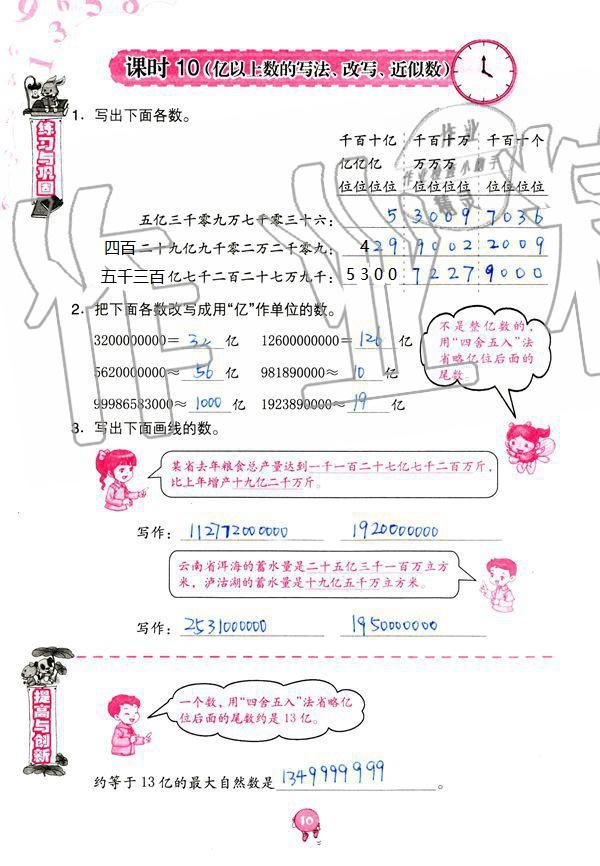 课时10(亿以上数的写法、改写、近似数)
练习与巩固
1. 写出下面各数。
千百十亿 千百十万 千百十个
亿亿亿 万万万
位位位位 位位位位 位位位位
五亿三千零九万七千零三十六： 5 3009 7036
四百二十九亿九千零二万二千零九： 429 9002 2009
五千三百亿七千二百二十七万九千： 5300 7227 9000
2. 把下面各数改写成用“亿”作单位的数。
3200000000= 32 亿 12600000000= 126 亿
5620000000≈ 56 亿 981890000≈ 10 亿
99986583000≈ 1000 亿 1923890000≈ 19 亿
不是整亿数的，
用“四舍五入”法
省略亿位后面的
尾数。
3. 写出下面画线的数。
某省去年粮食总产量达到一千一百二十七亿七千二百万斤，
比上年增产十九亿二千万斤。
写作： 112772000000 1920000000
云南省洱海的蓄水量是二十五亿三千一百万立方
米，泸沽湖的蓄水量是十九亿五千万立方米。
写作： 2531000000 1950000000
提高与创新
一个数，用“四舍五入”法省略亿
位后面的尾数约是13亿。
约等于13亿的最大自然数是 1349999999 。
10
作业
作业检查小助手
精灵